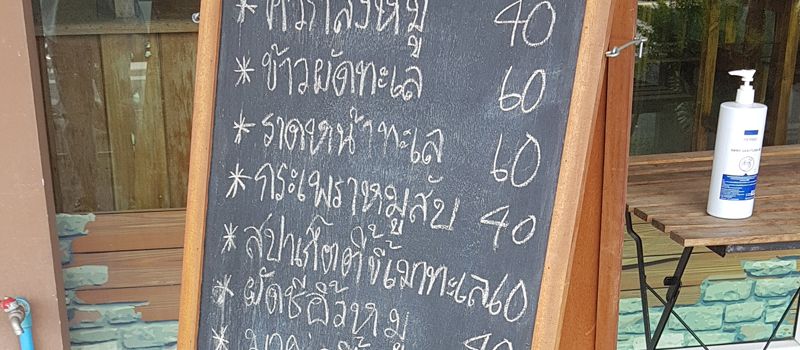 * ข้าวผัดทะเล 60
* ราดหน้าทะเล 60
* กระเพราหมูสับ 40
* สปาเก็ตตี้ขี้เมาทะเล 60
* ผัดซีอิ้วหมู